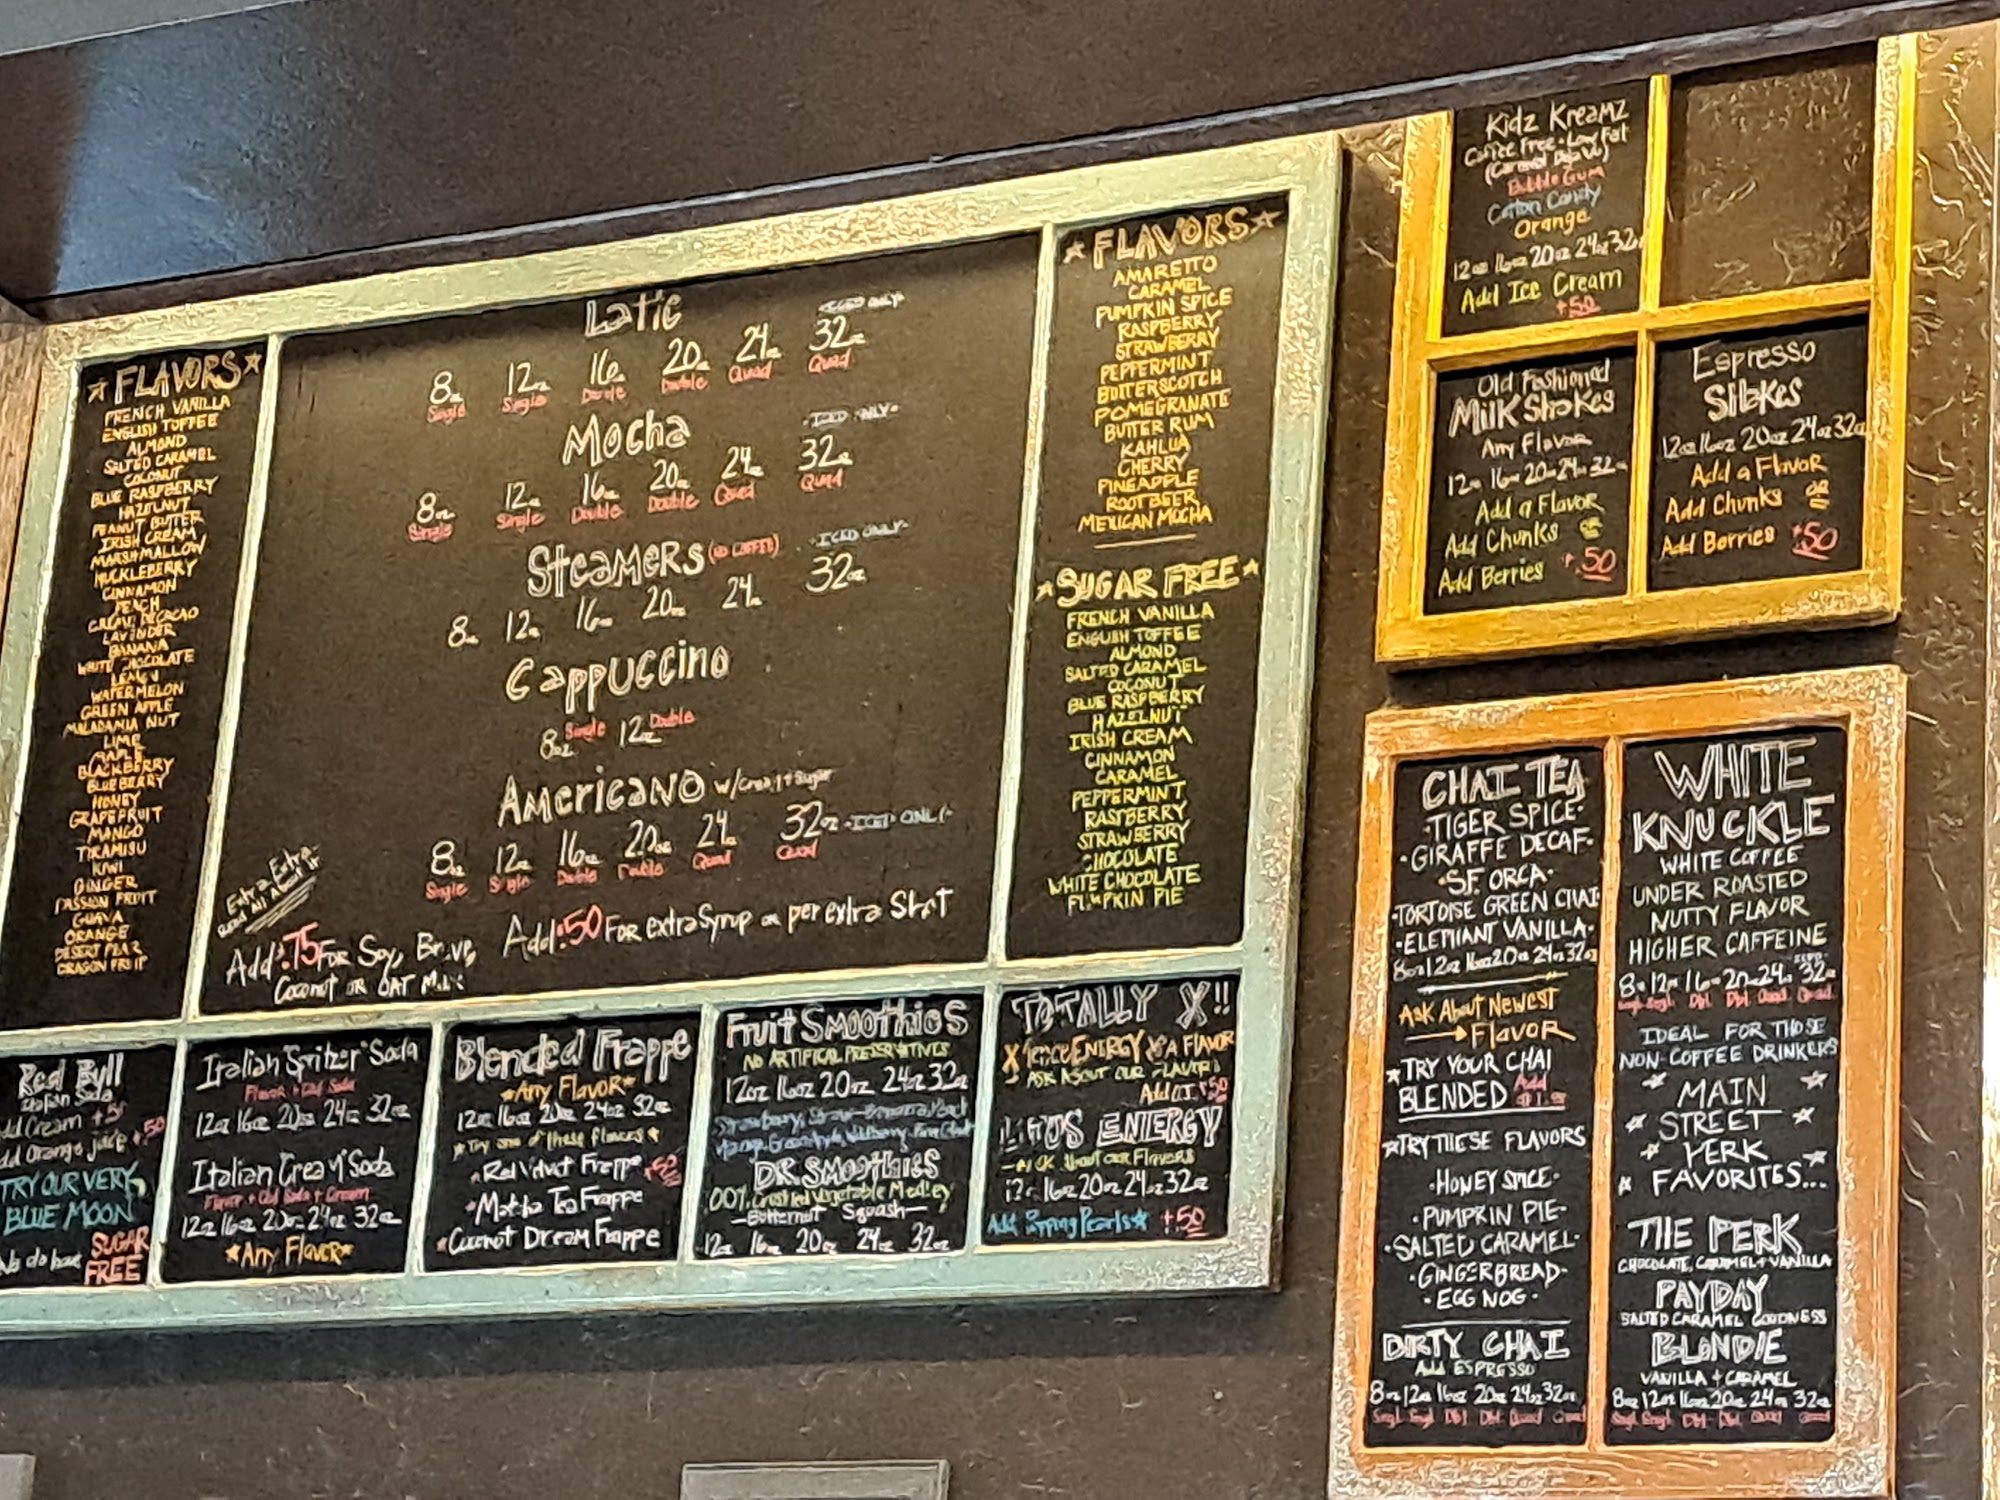 ★ FLAVORS ★
FRENCH VANILLA
ENGLISH TOFFEE
ALMOND
SALTED CARAMEL
COCONUT
BLUE RASPBERRY
HAZELNUT
PEANUT BUTTER
IRISH CREAM
MARSHMALLOW
HUCKLEBERRY
CINNAMON
PEACH
LAVENDER
BANANA
WHITE CHOCOLATE
WATERMELON
GREEN APPLE
MACADAMIA NUT
LIME
BLACKBERRY
BLUEBERRY
HONEY
GRAPEFRUIT
MANGO
TIRAMISU
KIWI
GINGER
PASSION FRUIT
GUAVA
ORANGE
DESERT PEAR
DRAGON FRUIT
Latte
ICED ONLY
8oz 12oz 16oz 20oz 24oz 32oz
Single Single Double Double Quad Quad
Mocha
ICED ONLY
8oz 12oz 16oz 20oz 24oz 32oz
Single Single Double Double Quad Quad
Steamers (NO COFFEE)
ICED ONLY
8oz 12oz 16oz 20oz 24oz 32oz
Cappuccino
8oz Single 12oz Double
Americano w/Cream + Sugar
8oz 12oz 16oz 20oz 24oz 32oz ICED ONLY
Single Single Double Double Quad Quad
Extra Extra
Read All About it
Add .75 For Soy, Breve,
Coconut OR OAT Milk
Add .50 For extra Syrup or per extra Shot
★ FLAVORS ★
AMARETTO
CARAMEL
PUMPKIN SPICE
RASPBERRY
STRAWBERRY
PEPPERMINT
BUTTERSCOTCH
POMEGRANATE
BUTTER RUM
KAHLUA
CHERRY
PINEAPPLE
ROOT BEER
MEXICAN MOCHA
★ SUGAR FREE ★
FRENCH VANILLA
ENGLISH TOFFEE
ALMOND
SALTED CARAMEL
COCONUT
BLUE RASPBERRY
HAZELNUT
IRISH CREAM
CINNAMON
CARAMEL
PEPPERMINT
RASTBERRY
STRAWBERRY
CHOCOLATE
WHITE CHOCOLATE
PUMPKIN PIE
Red Bull
Italian Soda
dd Cream
dd Orange juice +.50
TRY OUR VERY
BLUE MOON
We do have SUGAR
FREE
Italian "Spritzer" Soda
Flavor + Club Soda
12oz 16oz 20oz 24oz 32oz
Italian "Cream" Soda
Flavor + Club Soda + Cream
12oz 16oz 20oz 24oz 32oz
★Any Flavor★
Blended Frappe
★Any Flavor★
12oz 16oz 20oz 24oz 32oz
★Try one of these flavors★
★Red Velvet Frappe +.50
★Matcha Tea Frappe
★Coconut Dream Frappe
Fruit Smoothies
NO ARTIFICAL PRESERVATIVES
12oz 16oz 20oz 24oz 32oz
DR. SMOOTHIES
100% Crushed Vegetable Medley
—Butternut Squash—
12oz 16oz 20oz 24oz 32oz
TOTALLY X!!
ENERGY FLAVOR
ASK ABOUT OUR FLAVORS
+.50
LOTUS ENERGY
Ask About our Flavors
12oz 16oz 20oz 24oz 32oz
Add Popping Pearls★ +.50
Kidz Kreamz
Coffee Free - Low Fat
(Caramel DejaVu)
Bubble Gum
Cotton Candy
Orange
12oz 16oz 20oz 24oz 32oz
Add Ice Cream
+.50
Old Fashioned
Milk Shakes
Any Flavor
12oz 16oz 20oz 24oz 32oz
Add a Flavor
Add Chunks or
Add Berries +.50
Espresso
Shakes
12oz 16oz 20oz 24oz 32oz
Add a Flavor
Add Chunks or
Add Berries +.50
CHAI TEA
·TIGER SPICE·
·GIRAFFE DECAF·
·S.F. ORCA·
·TORTOISE GREEN CHAI
·ELEPHANT VANILLA·
8oz 12oz 16oz 20oz 24oz 32oz
ASK ABOUT NEWEST
→FLAVOR
★TRY YOUR CHAI
BLENDED Add
★TRY THESE FLAVORS
·HONEY SPICE·
·PUMPKIN PIE·
·SALTED CARAMEL·
·GINGERBREAD·
·EGG NOG·
DIRTY CHAI
ADD ESPRESSO
8oz 12oz 16oz 20oz 24oz 32oz
Sngl Sngl Dbl Dbl Quad Quad
WHITE
KNUCKLE
WHITE COFFEE
UNDER ROASTED
NUTTY FLAVOR
HIGHER CAFFEINE
8oz 12oz 16oz 20oz 24oz 32oz
Sngl Sngl Dbl Dbl Quad Quad
IDEAL FOR THOSE
NON-COFFEE DRINKERS
★ MAIN ★
★ STREET ★
★ PERK ★
★ FAVORITES...
THE PERK
CHOCOLATE, CARAMEL + VANILLA
PAYDAY
SALTED CARAMEL GOODNESS
BLONDIE
VANILLA + CARAMEL
8oz 12oz 16oz 20oz 24oz 32oz
Sngl Sngl Dbl Dbl Quad Quad